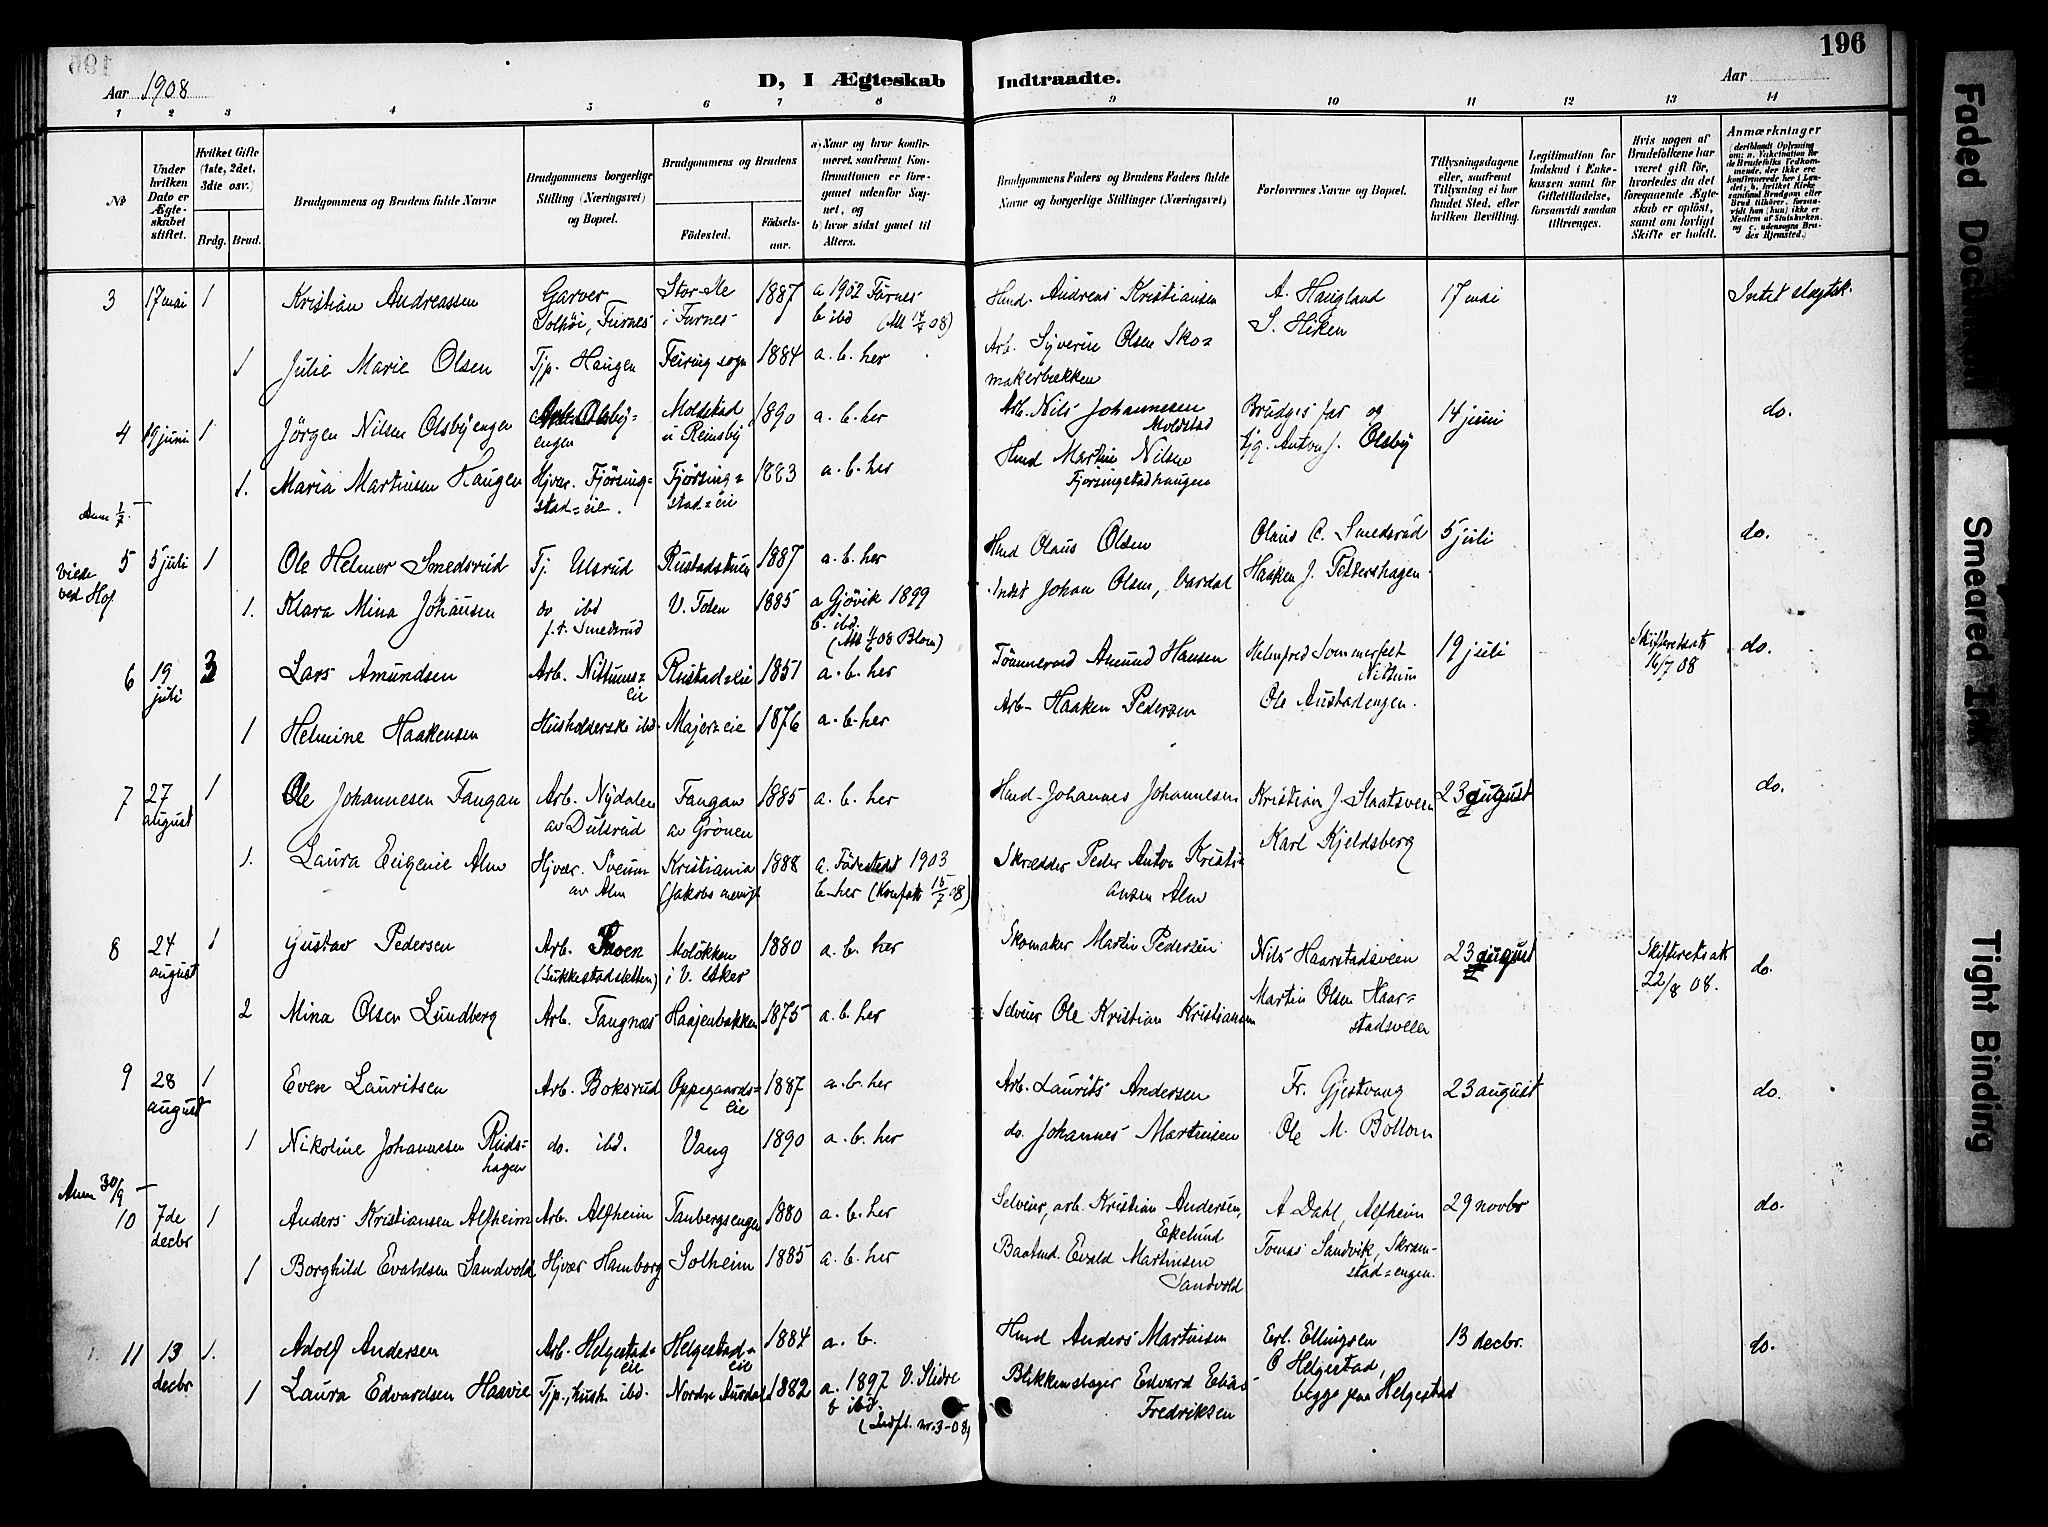 196
Aar 1908
D, I Ægteskab Indtraadte.
Aar
1 2 3 4 5 6 7 8 9 10 11 12 13 14
No
Under hvilken Dato er Ægteskabet stiftet.
Hvilket Gifte (1ste, 2det, 3die osv.)
Brdg. Brud.
Brudgommens og Brudens fulde Navne
Brudgommens borgerlige Stilling (Næringsvei) og Bopæl.
Brudgommens og Brudens
Fødested. Fødselsaar.
a) Naar og hvor konfirmeret, saafremt Konfirmationen er foregaaet udenfor Sognet, og b) hvor sidst gaaet til Alters.
Brudgommens Faders og Brudens Faders fulde Navne og borgerlige Stillinger (Næringsvei)
Forlovernes Navne og Bopæl.
Tillysningsdagene eller, saafremt Tillysning ei har fundet Sted, efter hvilken Bevilling.
Legitimation for Indskud i Enkekassen samt for Giftetilladelse, forsaavidt saadan tiltrænges.
Hvis nogen af Brudefolkene har været gift før, hvorledes da det foregaaende Ægteskab er opløst, samt om lovligt Skifte er holdt.
Anmærkninger
3 17 mai 1 Kristian Andreassen Garver Solhöi, Furnes i Furnes 1887 a 1902 Furnes b ibd Hmd. Andreas Kristiansen A. Haugland S. Hiken 17 mai Intet slegtsk.
1 Julie Marie Olsen Tjp. Haugen Feiring sogn 1884 a. b. her Arb. Syverin Olsen Skomakerbækken
4 19 juni 1 Jörgen Nilsen Olsbyengen Olsbyengen Moldstad i Reinsby 1890 a. b. her Arb. Nils Johannesen Moldstad Brudgs far og Gg. Anton J. Olsby 14 juni do.
1. Maria Martinsen Haugen Hjvær. Fjörsingstad=eie. Fjörsing=stad=eie 1883 a. b. her Hmd Martin Nilsen Fjorsingstadhaugen
Anm 1/7
viede ved Hof.
5 5 juli 1 Ole Helmer Smedsrud Tj. Ulsrud Rustadstuen 1887 a. b. her Hmd Olaus Olsen Olaus C. Smedsrud Haaken J. Pettershagen 5 juli do.
1. Klara Mina Johansen do ibd f. t. Smedsrud V. Toten 1885 a Gjövik 1899 b. ibd. Indst Johan Olsen, Vardal
6 19 juli 3 Lars Amundsen Arb. Nittums=eie Rustad=eie 1851 a. b. her Amund Hansen Helmfred Sommerfest Nittum Ole Austadengen. 19 juli Skifteretsatt 16/7 08 do.
1 Helmine Haakensen Husholderske ibd. Majer=eie 1876 a. b. her Arb. Haaken Pedersen
7 27 august 1 Ole Johannesen Tangan Arb. Nydalen av Dulsrud Tangan av Grönen 1885 a. b. her Hmd. Johannes Johannesen Kristian J. Slaatsveen Karl Kjeldsberg 23 august do.
1. Laura Eugenie Alm Hjvær. Sveum av Alm Kristiania (Jakobs menigh 1888 a. Födestedet 1903 b. her (Konfatt 15/7 08) Skrædder Peder Anton Kristiansen Alm
8 24 august 1 Gustav Pedersen Arb. (Lukkestadsletten) Molökken i V. Aker 1880 a. b. her Skomaker Martin Pedersen Nils Haarstadsveen Martin Olsen Haarstadsveen 23 august Skifteretsatt 22/8 08. do.
2 Mina Olsen Lundberg Arb. Tangnæs Haajenbakken 1875 a. b. her Selveier Ole Kristian Kristiansen
9 28 august 1 Even Lauritsen Arb. Boksrud Oppegaards=eie 1887 a. b. her Arb. Laurits Andersen Fr. Gjestvang Ole M. Bollom 23 august do.
1 Nikoline Johannesen Rudshagen do. ibd. Vang 1890 a. b. her do. Johannes Martinsen
Anm 30/9
10 7de decbr 1 Anders Kristiansen Alfheim Arb. Alfheim Taubergsengen 1880 a. b. her Selveier, arb. Kristian Andersen, Ekelund A Dahl, Alfheim Tomas Sandvik, Skramstad=engen. 29 novbr do.
1 Borghild Evaldsen Sandvold Hjvær Hamborg Solheim 1885 a. b. her Baatmd. Evald Martinsen Sandvold
11 13 decbr 1. Adolf Andersen Arb. Helgestad=eie Helgestad=eie 1884 a. b. Hmd Anders Martinsen Erl. Ellingsen O Helgestad, begge paa Helgestad 13 decbr. do.
1 Laura Edvardsen Haavie Tjp., hush. ibd. Nordre Aurdal 1882 a. 1897 V. Slidre b ibd. (Indfl. nr. 3-08) Blikkenslager Edvard Elias Fredriksen
Faded Document
Smeared Ink
Tight Binding